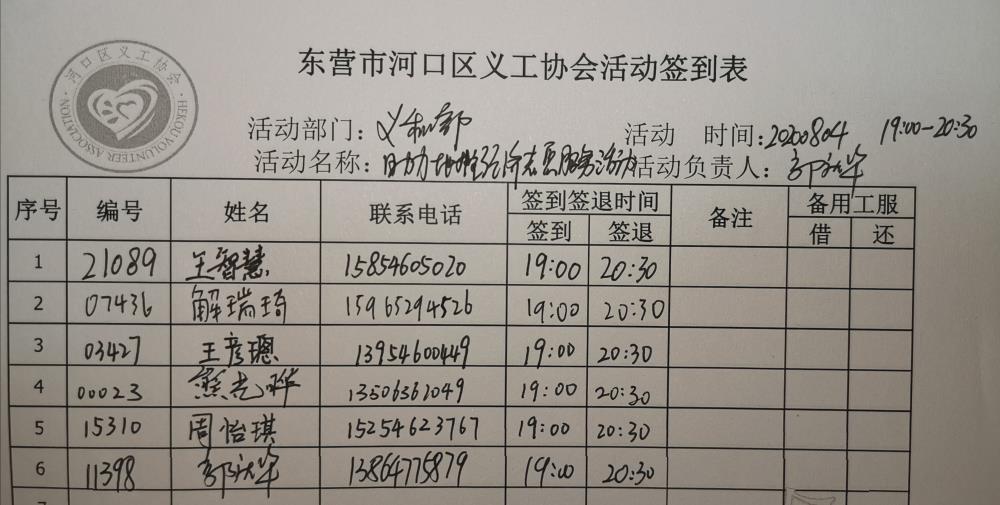 河口区义工协会
HEKOU VOLUNTEER ASSOCIATION
东营市河口区义工协会活动签到表
活动部门：义 部 活动 时间：20200804 19:00-20:30
活动名称：助力地摊经济志愿服务活动 活动负责人：郭
序号 编号 姓名 联系电话 签到签退时间 备注 备用工服
签到 签退 借 还
1 21089 王智慧 15854605020 19:00 20:30
2 07436 解瑞琦 15965294526 19:00 20:30
3 03427 王彦璁 13954600449 19:00 20:30
4 00023 熊光晔 13506361049 19:00 20:30
5 15310 周怡琪 15254623767 19:00 20:30
6 11398 郭 13864775879 19:00 20:30